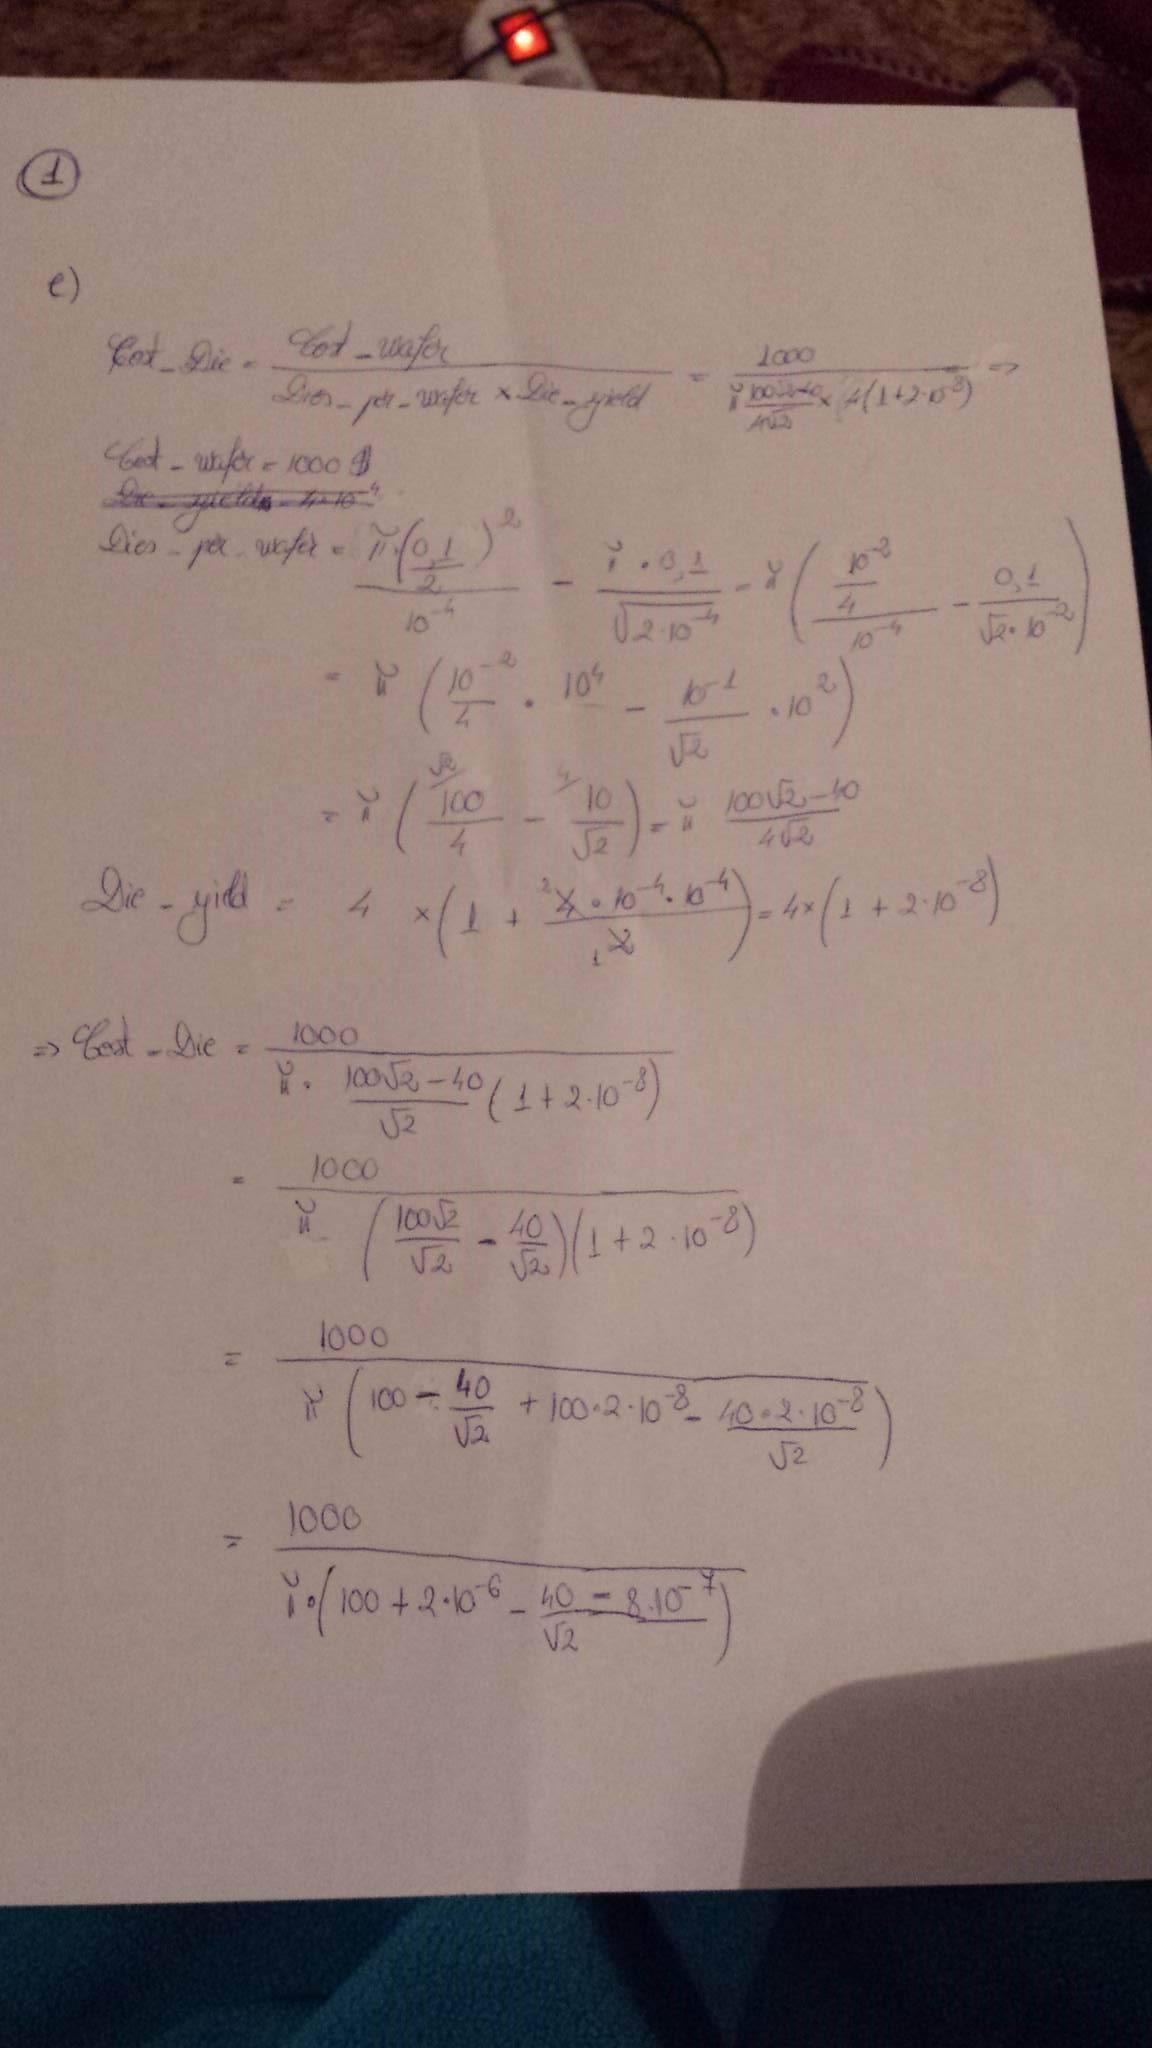 1
e)
Cost_Die = Cost_wafer / Dies_per_wafer × Die_yield = 1000 / π (100√2-40)/(4√2) × 4(1+2·10^-8) ⇒
Cost_wafer = 1000 $
Dies_per_wafer = π·(0,1/2)^2 / 10^-4 - π·0,1 / √(2·10^-4) = π ( (10^-2/4) / 10^-4 - 0,1 / (√2·10^-2) )
= π ( 10^-2/4 · 10^4 - 10^-1/√2 · 10^2 )
= π ( √2/ 100/4 - 4/ 10/√2 ) = π (100√2-40)/(4√2)
Die_yield = 4 × ( 1 + 2 4·10^-4·10^-4 / 1 2 ) = 4×( 1 + 2·10^-8 )
⇒ Cost_Die = 1000 / π· (100√2-40)/√2 ( 1+2·10^-8 )
= 1000 / π ( 100√2/√2 - 40/√2 )( 1+2·10^-8 )
= 1000 / π ( 100 - 40/√2 + 100·2·10^-8 - 40·2·10^-8/√2 )
= 1000 / π·( 100 + 2·10^-6 - (40 - 8·10^-7)/√2 )